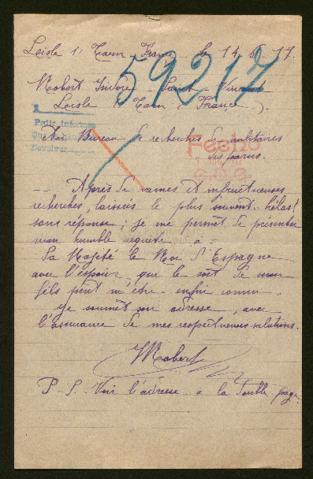 Loisle 1. Tarn. France le 14
59217
Robert Isidore Saint
Loisle (Tarn) (France).
Au Bureau de recherches de militaires
disparus.
Fecho
C.D.G.
Après de vaines et infructueuses
recherches, laissées le plus souvent, hélas!
sans réponse; je me permet de présenter
mon humble requête a
Sa Majesté le Roi d'Espagne
avec l'espoir que le sort de mon
fils peut m'être enfin connu.
Je soumet son adresse, avec
l'assurance de mes respectueuses salutations.
Robert
P-S-Voir l'adresse a la double page